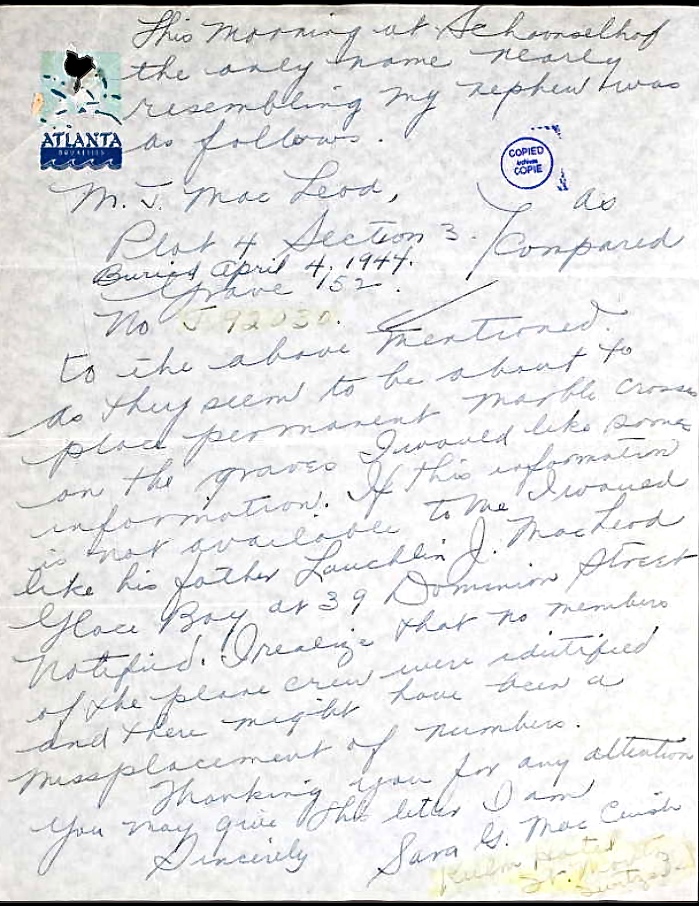 This morning at Schoonselhof
the only name nearly
resembling my nephew was
as follows.
ATLANTA
BRUXELLES
COPIED
archives
COPIE
M. J. Mac Leod,
as
Plot 4 Section 3.
Compared
Buried April 4, 1944.
Grave 152.
No J 92030.
to the above mentioned.
as they seem to be about to
place permanent marble cross
on the graves I would like some
information. If this information
is not available to me I would
like his father Lauchlin J. MacLeod
Glace Bay at 39 Dominion Street
Notified. I realize that no members
of the plane crew were identified
and there might have been a
missplacement of numbers.
Thanking you for any attention
you may give this letter I am
Sincerely Sara G. Mac
Kulm Hotel
St. Moritz